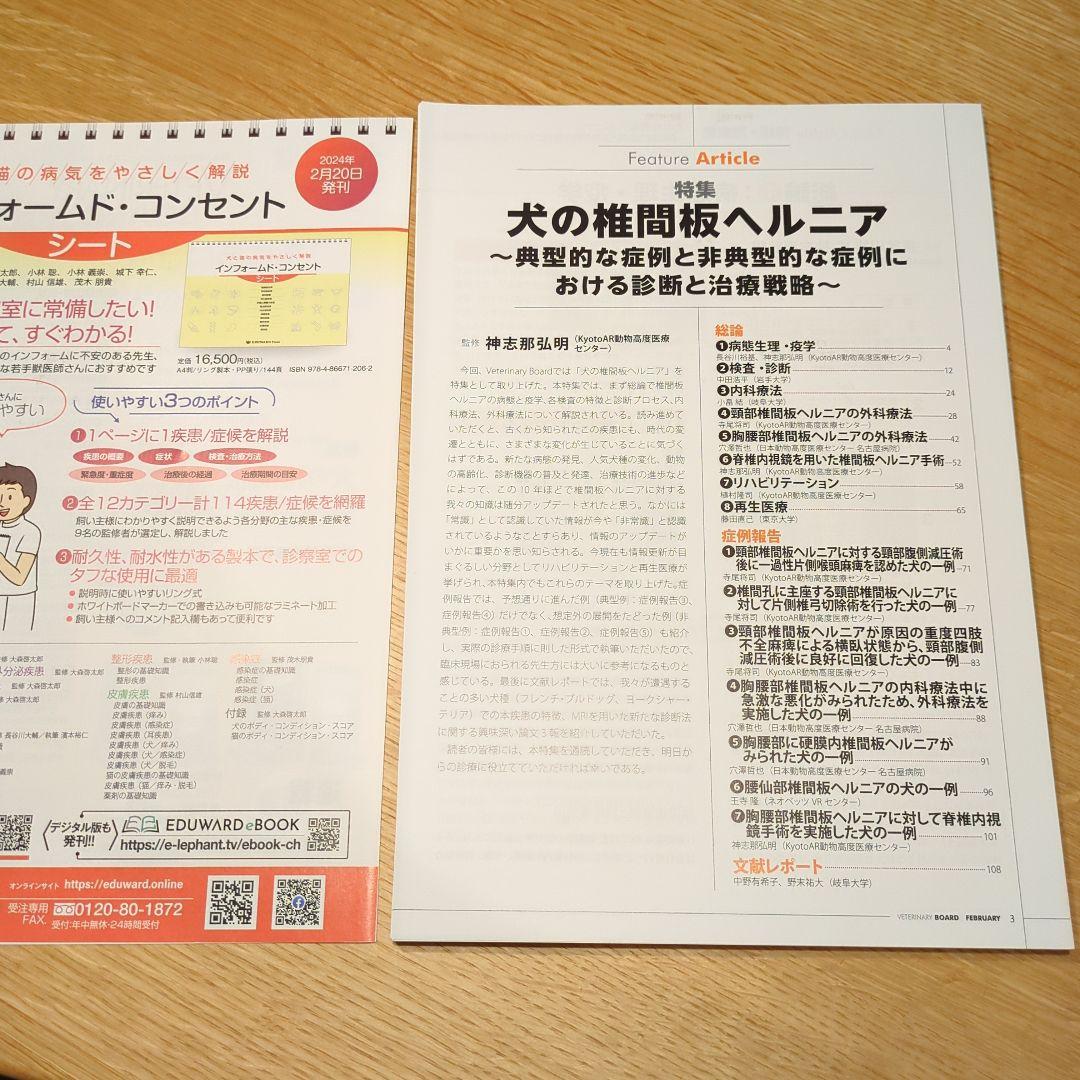 猫の病気をやさしく解説
2024年
2月20日
発刊
フォームド・コンセント
シート
太郎、小林 聡、小林 義崇、城下 幸仁、
大輔、村山 信雄、茂木 朋貴
犬と猫の病気をやさしく解説
インフォームド・コンセント
シート
室に常備したい!
て、すぐわかる!
のインフォームに不安のある先生、
な若手獣医師さんにおすすめです
定価 16,500円(税込)
A4判/リング製本・PP張り/144頁 ISBN 978-4-86671-206-2
さんに
やすい
使いやすい3つのポイント
❶1ページに1疾患/症候を解説
疾患の概要 症状 検査・治療方法
緊急度・重症度 治療後の経過 治療期間の目安
❷全12カテゴリー計114疾患/症候を網羅
飼い主様にわかりやすく説明できるよう各分野の主な疾患・症候を
9名の監修者が選定し、解説しました
❸耐久性、耐水性がある製本で、診察室での
タフな使用に最適
● 説明時に使いやすいリング式
● ホワイトボードマーカーでの書き込みも可能なラミネート加工
● 飼い主様へのコメント記入欄もあって便利です
監修 大森啓太郎
内分泌疾患 監修 大森啓太郎
監修 大森啓太郎
監修 大森啓太郎
長谷川大輔/執筆 濱本裕仁
義崇
整形疾患 監修・執筆 小林聡
整形の基礎知識
整形疾患
皮膚疾患 監修 村山信雄
皮膚の基礎知識
皮膚疾患(痒み)
皮膚疾患(感染症)
皮膚疾患(耳疾患)
皮膚疾患(犬/痒み)
皮膚疾患(犬/感染症)
皮膚疾患(犬/脱毛)
猫の皮膚疾患の基礎知識
皮膚疾患(猫/痒み・脱毛)
薬剤の基礎知識
感染症 監修 茂木朋貴
感染症の基礎知識
感染症
感染症(犬)
感染症(猫)
付録 監修 大森啓太郎
犬のボディ・コンディション・スコア
猫のボディ・コンディション・スコア
デジタル版も
発刊!!
EDUWARD eBOOK
https://e-lephant.tv/ebook-ch
オンラインサイト https://eduward.online
受注専用
FAX.
0120-80-1872
受付:年中無休・24時間受付
Feature Article
特集
犬の椎間板ヘルニア
～典型的な症例と非典型的な症例に
おける診断と治療戦略～
監修 神志那弘明(KyotoAR動物高度医療
センター)
今回、Veterinary Boardでは「犬の椎間板ヘルニア」を
特集として取り上げた。本特集では、まず総論で椎間板
ヘルニアの病態と疫学、各検査の特徴と診断プロセス、内
科療法、外科療法について解説されている。読み進めて
いただくと、古くから知られたこの疾患にも、時代の変
遷とともに、さまざまな変化が生じていることに気づく
はずである。新たな病態の発見、人気犬種の変化、動物
の高齢化、診断機器の普及と発達、治療技術の進歩など
によって、この10年ほどで椎間板ヘルニアに対する
我々の知識は随分アップデートされたと思う。なかには
「常識」として認識していた情報が今や「非常識」と認識
されているようなことすらあり、情報のアップデートが
いかに重要かを思い知らされる。今現在も情報更新が目
まぐるしい分野としてリハビリテーションと再生医療が
挙げられ、本特集内でもこれらのテーマを取り上げた。症
例報告では、予想通りに進んだ例(典型例:症例報告③、
症例報告④)だけでなく、想定外の展開をたどった例(非
典型例:症例報告①、症例報告②、症例報告⑤)も紹介
し、実際の診療手順に則した形で執筆いただいたので、
臨床現場におられる先生方には大いに参考になるものと
感じている。最後に文献レポートでは、我々が遭遇する
ことの多い犬種(フレンチ・ブルドッグ、ヨークシャー・
テリア)での本疾患の特徴、MRIを用いた新たな診断法
に関する興味深い論文3報を紹介していただいた。
読者の皆様には、本特集を通読していただき、明日か
らの診療に役立てていただければ幸いである。
総論
❶病態生理・疫学 4
長谷川裕基、神志那弘明(KyotoAR動物高度医療センター)
❷検査・診断 12
中田浩平(岩手大学)
❸内科療法 24
小畠 結(岐阜大学)
❹頸部椎間板ヘルニアの外科療法 28
寺尾将司(KyotoAR動物高度医療センター)
❺胸腰部椎間板ヘルニアの外科療法 42
穴澤哲也(日本動物高度医療センター 名古屋病院)
❻脊椎内視鏡を用いた椎間板ヘルニア手術 52
神志那弘明(KyotoAR動物高度医療センター)
❼リハビリテーション 58
植村隆司(KyotoAR動物高度医療センター)
❽再生医療 65
藤田直己(東京大学)
症例報告
❶頸部椎間板ヘルニアに対する頸部腹側減圧術
後に一過性片側喉頭麻痺を認めた犬の一例 71
寺尾将司(KyotoAR動物高度医療センター)
❷椎間孔に主座する頸部椎間板ヘルニアに
対して片側椎弓切除術を行った犬の一例 77
寺尾将司(KyotoAR動物高度医療センター)
❸頸部椎間板ヘルニアが原因の重度四肢
不全麻痺による横臥状態から、頸部腹側
減圧術後に良好に回復した犬の一例 83
寺尾将司(KyotoAR動物高度医療センター)
❹胸腰部椎間板ヘルニアの内科療法中に
急激な悪化がみられたため、外科療法を
実施した犬の一例 88
穴澤哲也(日本動物高度医療センター 名古屋病院)
❺胸腰部に硬膜内椎間板ヘルニアが
みられた犬の一例 91
穴澤哲也(日本動物高度医療センター 名古屋病院)
❻腰仙部椎間板ヘルニアの犬の一例 96
王寺 隆(ネオベッツVRセンター)
❼胸腰部椎間板ヘルニアに対して脊椎内視
鏡手術を実施した犬の一例 101
神志那弘明(KyotoAR動物高度医療センター)
文献レポート 108
中野有希子、野末祐大(岐阜大学)
VETERINARY BOARD FEBRUARY 3